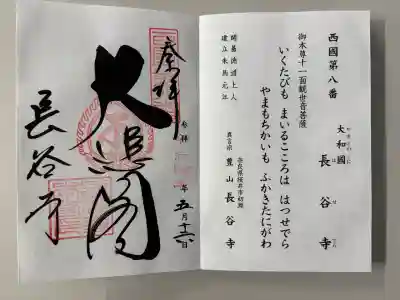 西國第八番
大和國 長谷寺
御本尊十一面観世音菩薩
いくたびも まいるこころは はつせでら
やまもちかいも ふかきたにがわ
開基 徳道上人
建立 朱鳥元年
奈良県桜井市初瀬
真言宗 豊山 長谷寺
奉拝
参拝 年 五月十六日
大悲閣
長谷寺